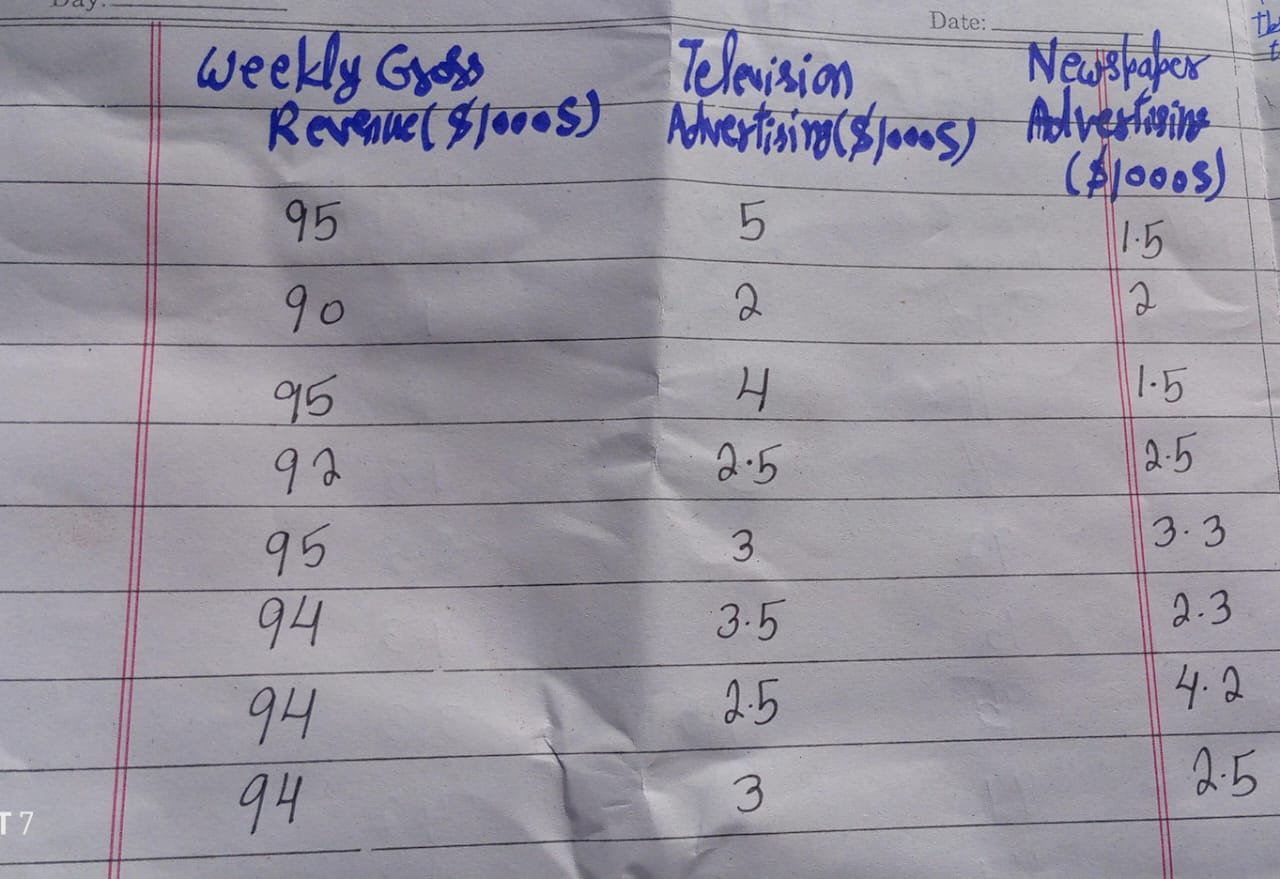 Day:
Date:
Weekly Gross Revenue($1000S) Television Advertising($1000S) Newspaper Advertising ($1000S)
95 5 1.5
90 2 2
95 4 1.5
92 2.5 2.5
95 3 3.3
94 3.5 2.3
94 2.5 4.2
94 3 2.5
T 7